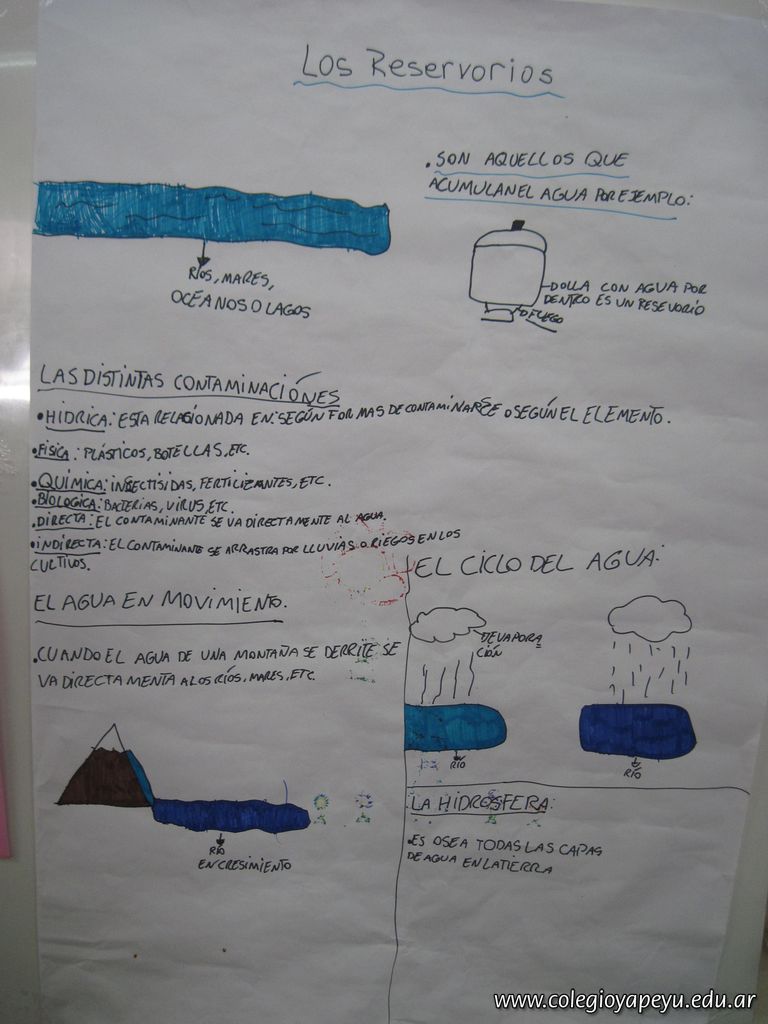 Los Reservorios
.SON AQUELLOS QUE
ACUMULAN EL AGUA POR EJEMPLO:
RÍOS, MARES,
OCÉANOS O LAGOS
DOLLA CON AGUA POR
DENTRO ES UN RESEVORIO
FUEGO
LAS DISTINTAS CONTAMINACIÓNES
•HIDRICA: ESTA RELASIONADA EN: SEGÚN FORMAS DE CONTAMINARSE O SEGÚN EL ELEMENTO.
•FISICA: PLÁSTICOS, BOTELLAS, ETC.
•QUÍMICA: INSECTISIDAS, FERTILIZANTES, ETC.
•BIOLOGICA: BACTERIAS, VIRUS, ETC.
•DIRECTA: EL CONTAMINANTE SE VA DIRECTAMENTE AL AGUA.
•INDIRECTA: EL CONTAMINANTE SE ARRASTRA POR LLUVIAS O RIEGOS EN LOS
CULTIVOS.
EL AGUA EN MOVIMIENTO.
.CUANDO EL AGUA DE UNA MONTAÑA SE DERRITE SE
VA DIRECTAMENTA A LOS RÍOS, MARES, ETC.
RÍO
EN CRESIMIENTO
EL CICLO DEL AGUA:
EVAPORA
CIÓN
RÍO
RÍO
LA HIDROSFERA:
•ES OSEA TODAS LAS CAPAS
DE AGUA EN LA TIERRA
www.colegioyapeyu.edu.ar